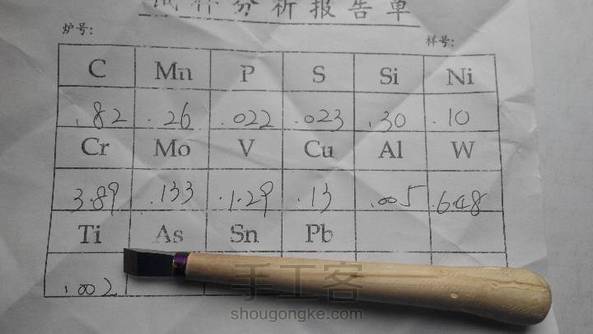 试样分析报告单
炉号: 样号:
C Mn P S Si Ni
.82 .26 .022 .023 .30 .10
Cr Mo V Cu Al W
3.89 .133 .1.29 .13 .005 .648
Ti As Sn Pb
.002
手工客
shougongke.com